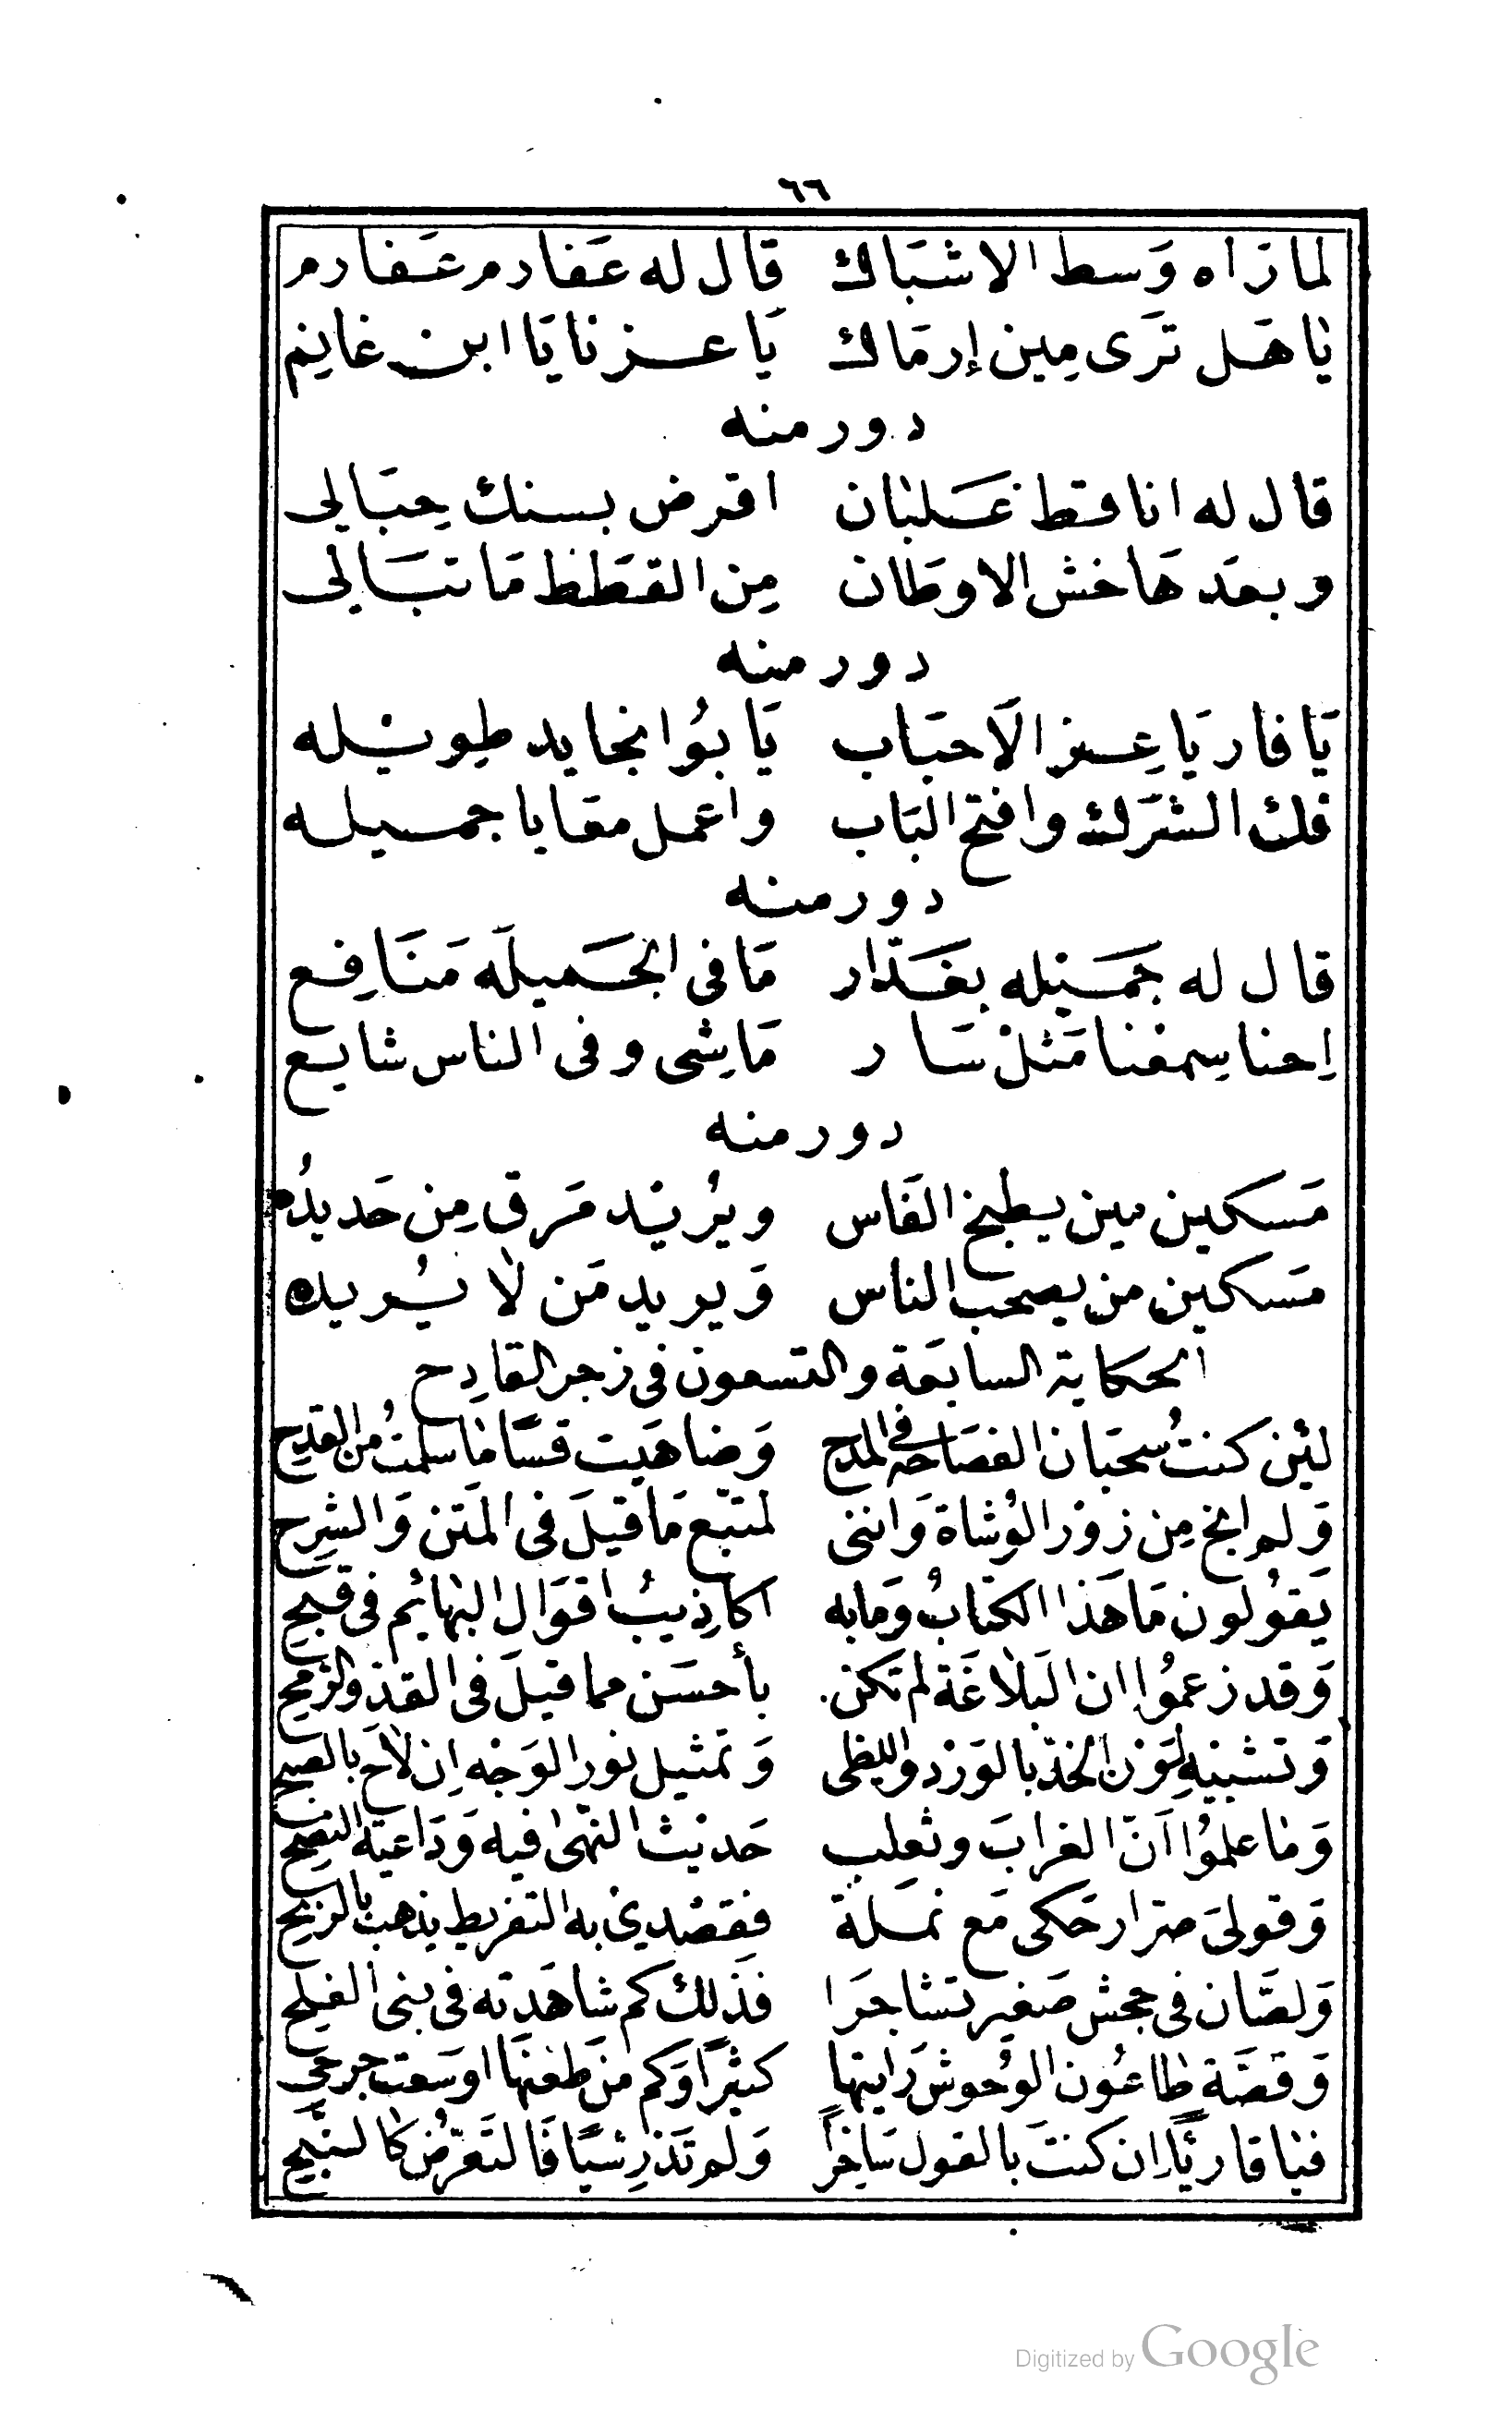 ٦٦
لما رَاه وَسط الاشبَاك قال له عَفارم عَفارم
يا هَل تَرَى مِين إرمَاك يَا عزنا يَا ابن غانِم
دور منه
قال له انا قط غَلبان اقرض بسنك حِبَالى
وبعَدهَا خش الاوطان مِن القطَط مَا تبَالى
دور منه
يَا فار يَا عِز الاَحبَاب يَا بُو انجايد طِويله
فك الشَرَك وافتح البَاب واعمل معَايا جميله
دور منه
قال له جَميله بغدَّار مَا فى الجَميلَه مَنَافِع
اِحنا سِمعْنا مَثلْ سَار مَاشِى وفى الناس شايع
دور منه
مَسكين مين يطبخ الفَاس ويُريد مَرق مِن حَديدُه
مَسكين من يصحب الناس وَيريد مَن لا يُريده
الحكاية السابعَة والتسعون فى زجر القادِح
لئِن كنتُ سحبَان الفصَاحه فى المدح وَضاهَيت قسًّا مَا سلمتُ من القدح
وَلم انج مِن زوْر الوُشاة وَاننى لمتبّع مَا قيلَ فى المَتن وَالشرح
يَقوُلون مَا هَذا الكتابُ وَمَا به اكاذيبُ اقوَال البهائم فى قبح
وَقد زعموُا ان البَلاغَة لم تكن بأحسَن مما قيلَ فى القد والرمح
وَتشبيهِ لَوْن الخدّ بالوَرْد واللظى وَتمثيل نور الوَجْه اِن لاحَ بالصبح
وَمَا علموُا اَنّ الغرابَ وثعلب حَديث النهى فيه وَدَاعية النصح
وَقولىَ صرّار حَكى مَع نملة فقصْدى به التفريط يذهب بالربح
وَلصّان فى جحش صَغير تشاجرَا فذَلك كم شاهَدته فى بنى الفلح
وَقصّة طاعُون الوُحوش رَايتها كثيرًا وَكم مَن طعْنهَا اوسَعت جرحى
فيا قارئًا اِن كنتَ بالقول سَاخِرًا وَلم تَدر شيًا فَالتَعَرّضُ كالنبح
Digitized by Google